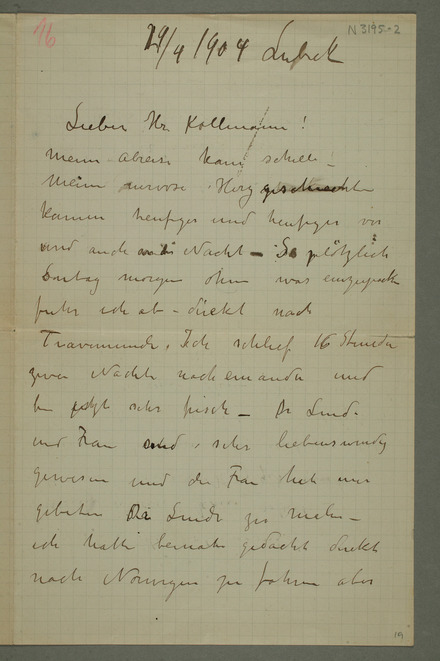 16
N 3195-2
29/9 1904 Lubeck
Lieber Hr. Kollmann!
Meine abreise kam schelle –
Meine nervose Herz geschichten
kamen heufiger und heufiger vor
und auch Nacht – So plötzlich
Sontag morgen ohne was einzupacken
fuhr ich ab – direkt nach
Travemunde. Ich schlief 16 Stunden
zwei Nachte nacheinander und
bin jetzt sehr frisch – Dr Linde
und Frau sind sehr liebenswürdig
gewesen und die Frau hat mir
gebeten Linde zu malen –
ich hatte beinahe gedacht direkt
nach Norwegen zu fahren aber